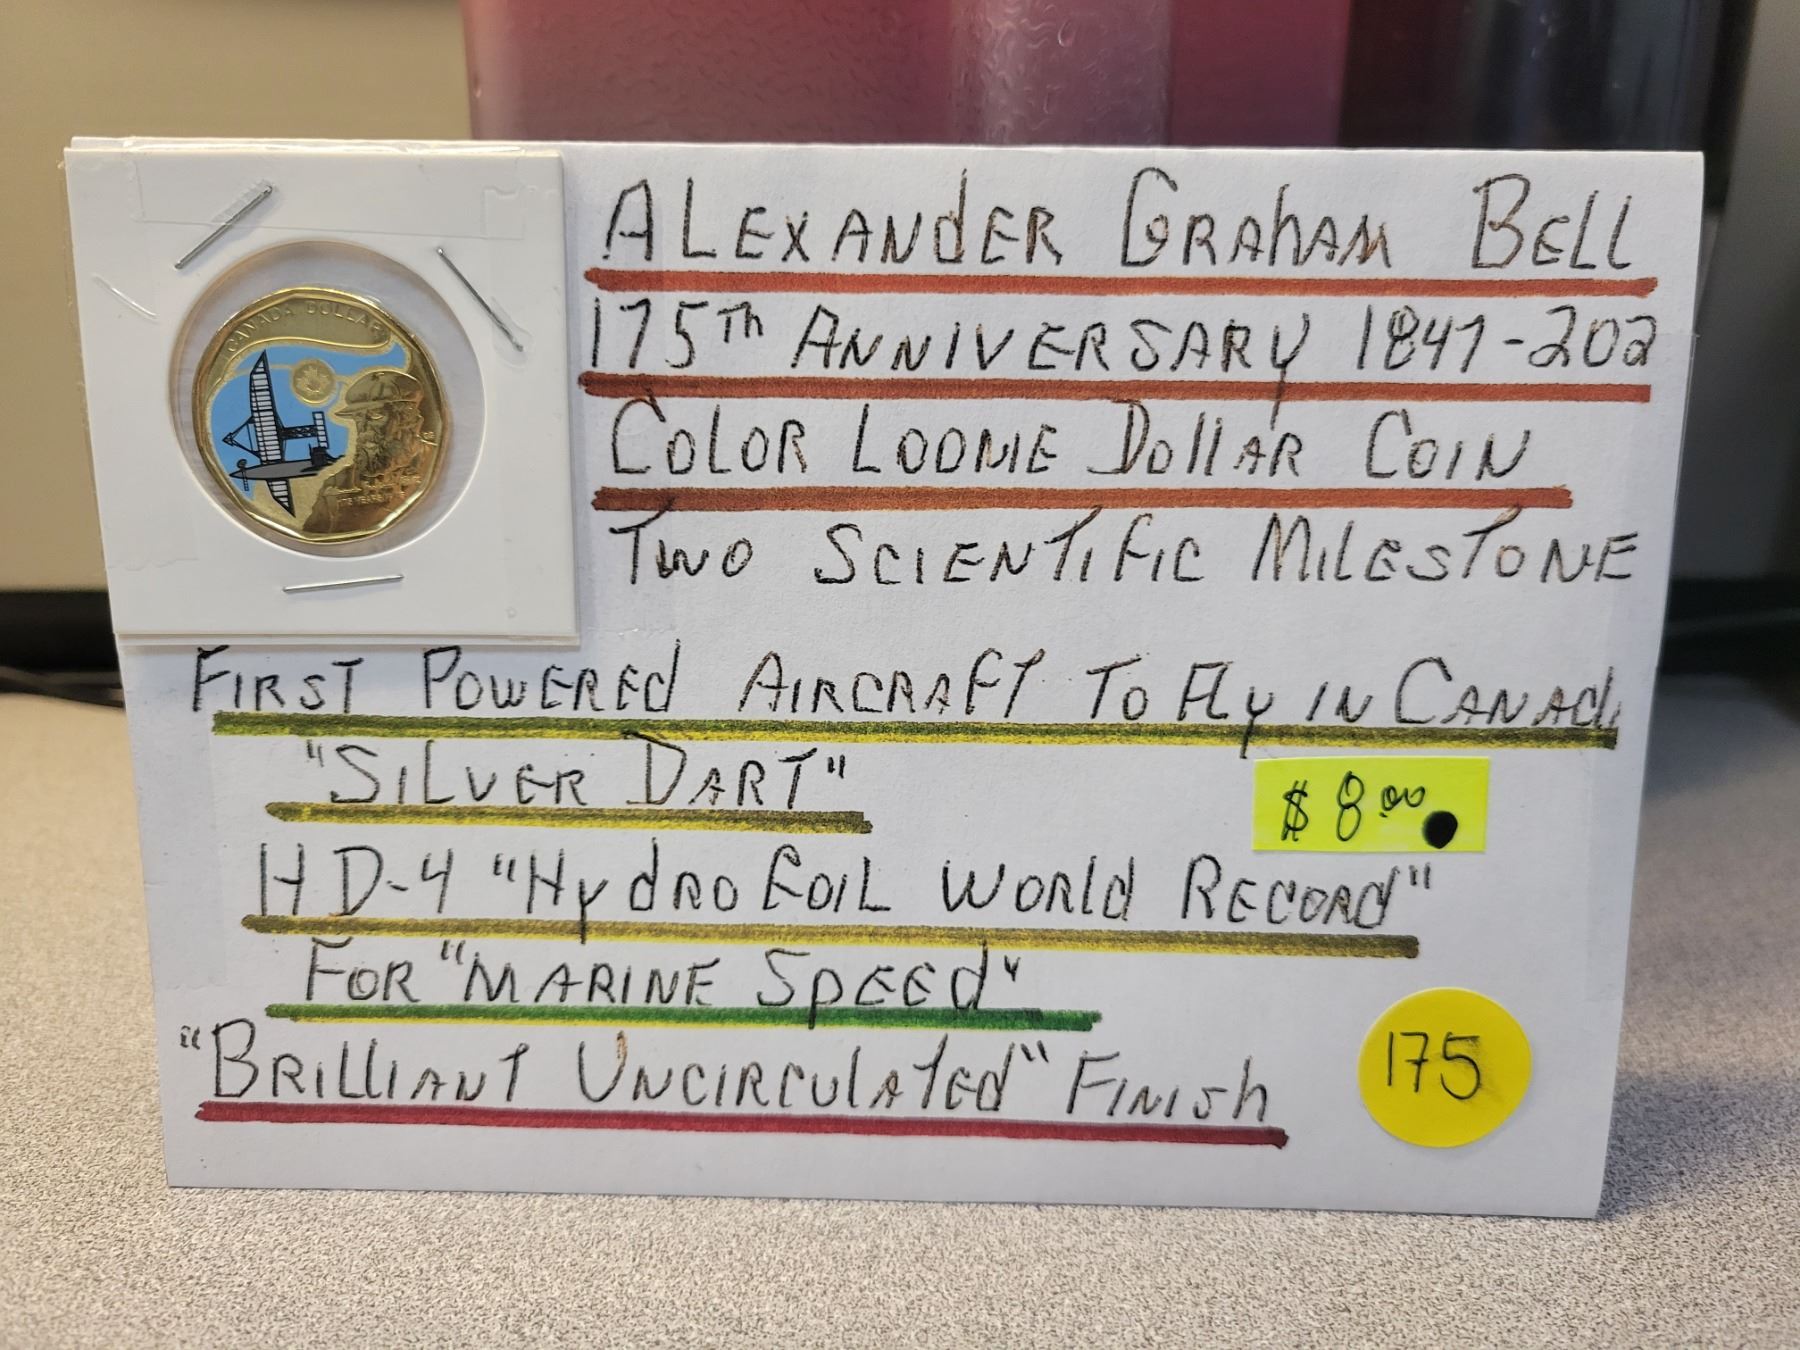 CANADA DOLLAR
ALEXANdER GRAhAM BELL
175Th ANNIVERSARY 1847-202
COLOR LOONIE DollAR COIN
TWO SCIENTIFIC MILESTONE
FIRST POWEREd AIRCRAFT TO FLy IN CANAd
"SILVER DART"
$8.00
HD-4 "HydROFOIL WORld RECORd"
FOR "MARINE SpEEd"
"BRILLIANT UNCIRCULATEd" FINISh
175